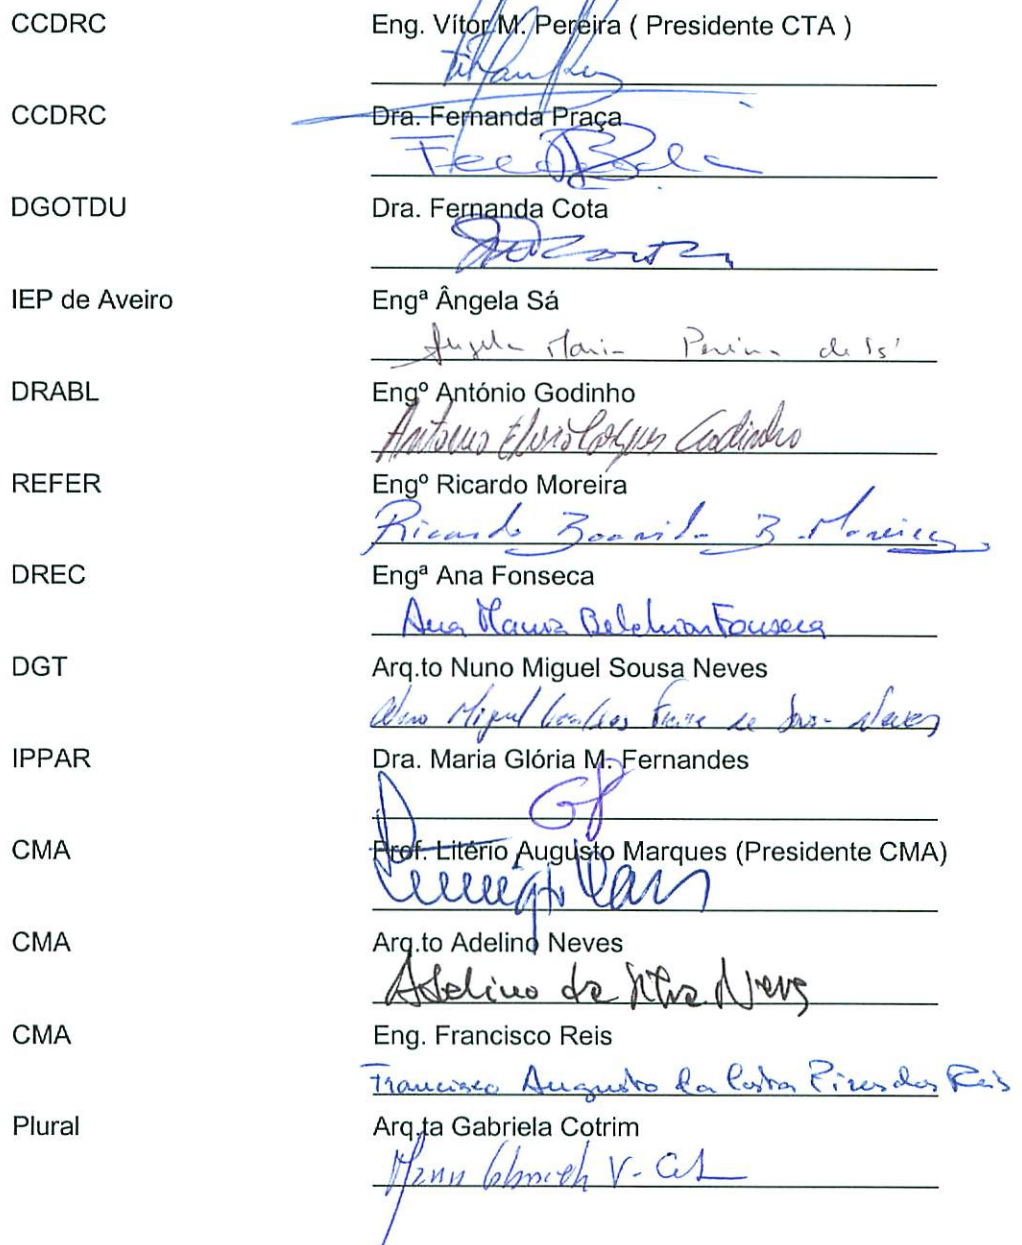 CCDRC Eng. Vítor M. Pereira ( Presidente CTA )
CCDRC Dra. Fernanda Praça
DGOTDU Dra. Fernanda Cota
IEP de Aveiro Engª Ângela Sá
Angela Maria Pereira de Sá
DRABL Engº António Godinho
Antonio Godinho
REFER Engº Ricardo Moreira
Ricardo B. Moreira
DREC Engª Ana Fonseca
Ana Maria Belchior Fonseca
DGT Arq.to Nuno Miguel Sousa Neves
Nuno Miguel Freire de Sousa Neves
IPPAR Dra. Maria Glória M. Fernandes
GF
CMA Prof. Litério Augusto Marques (Presidente CMA)
CMA Arq.to Adelino Neves
Adelino da Silva Neves
CMA Eng. Francisco Reis
Francisco Augusto da Costa Pires dos Reis
Plural Arq.ta Gabriela Cotrim